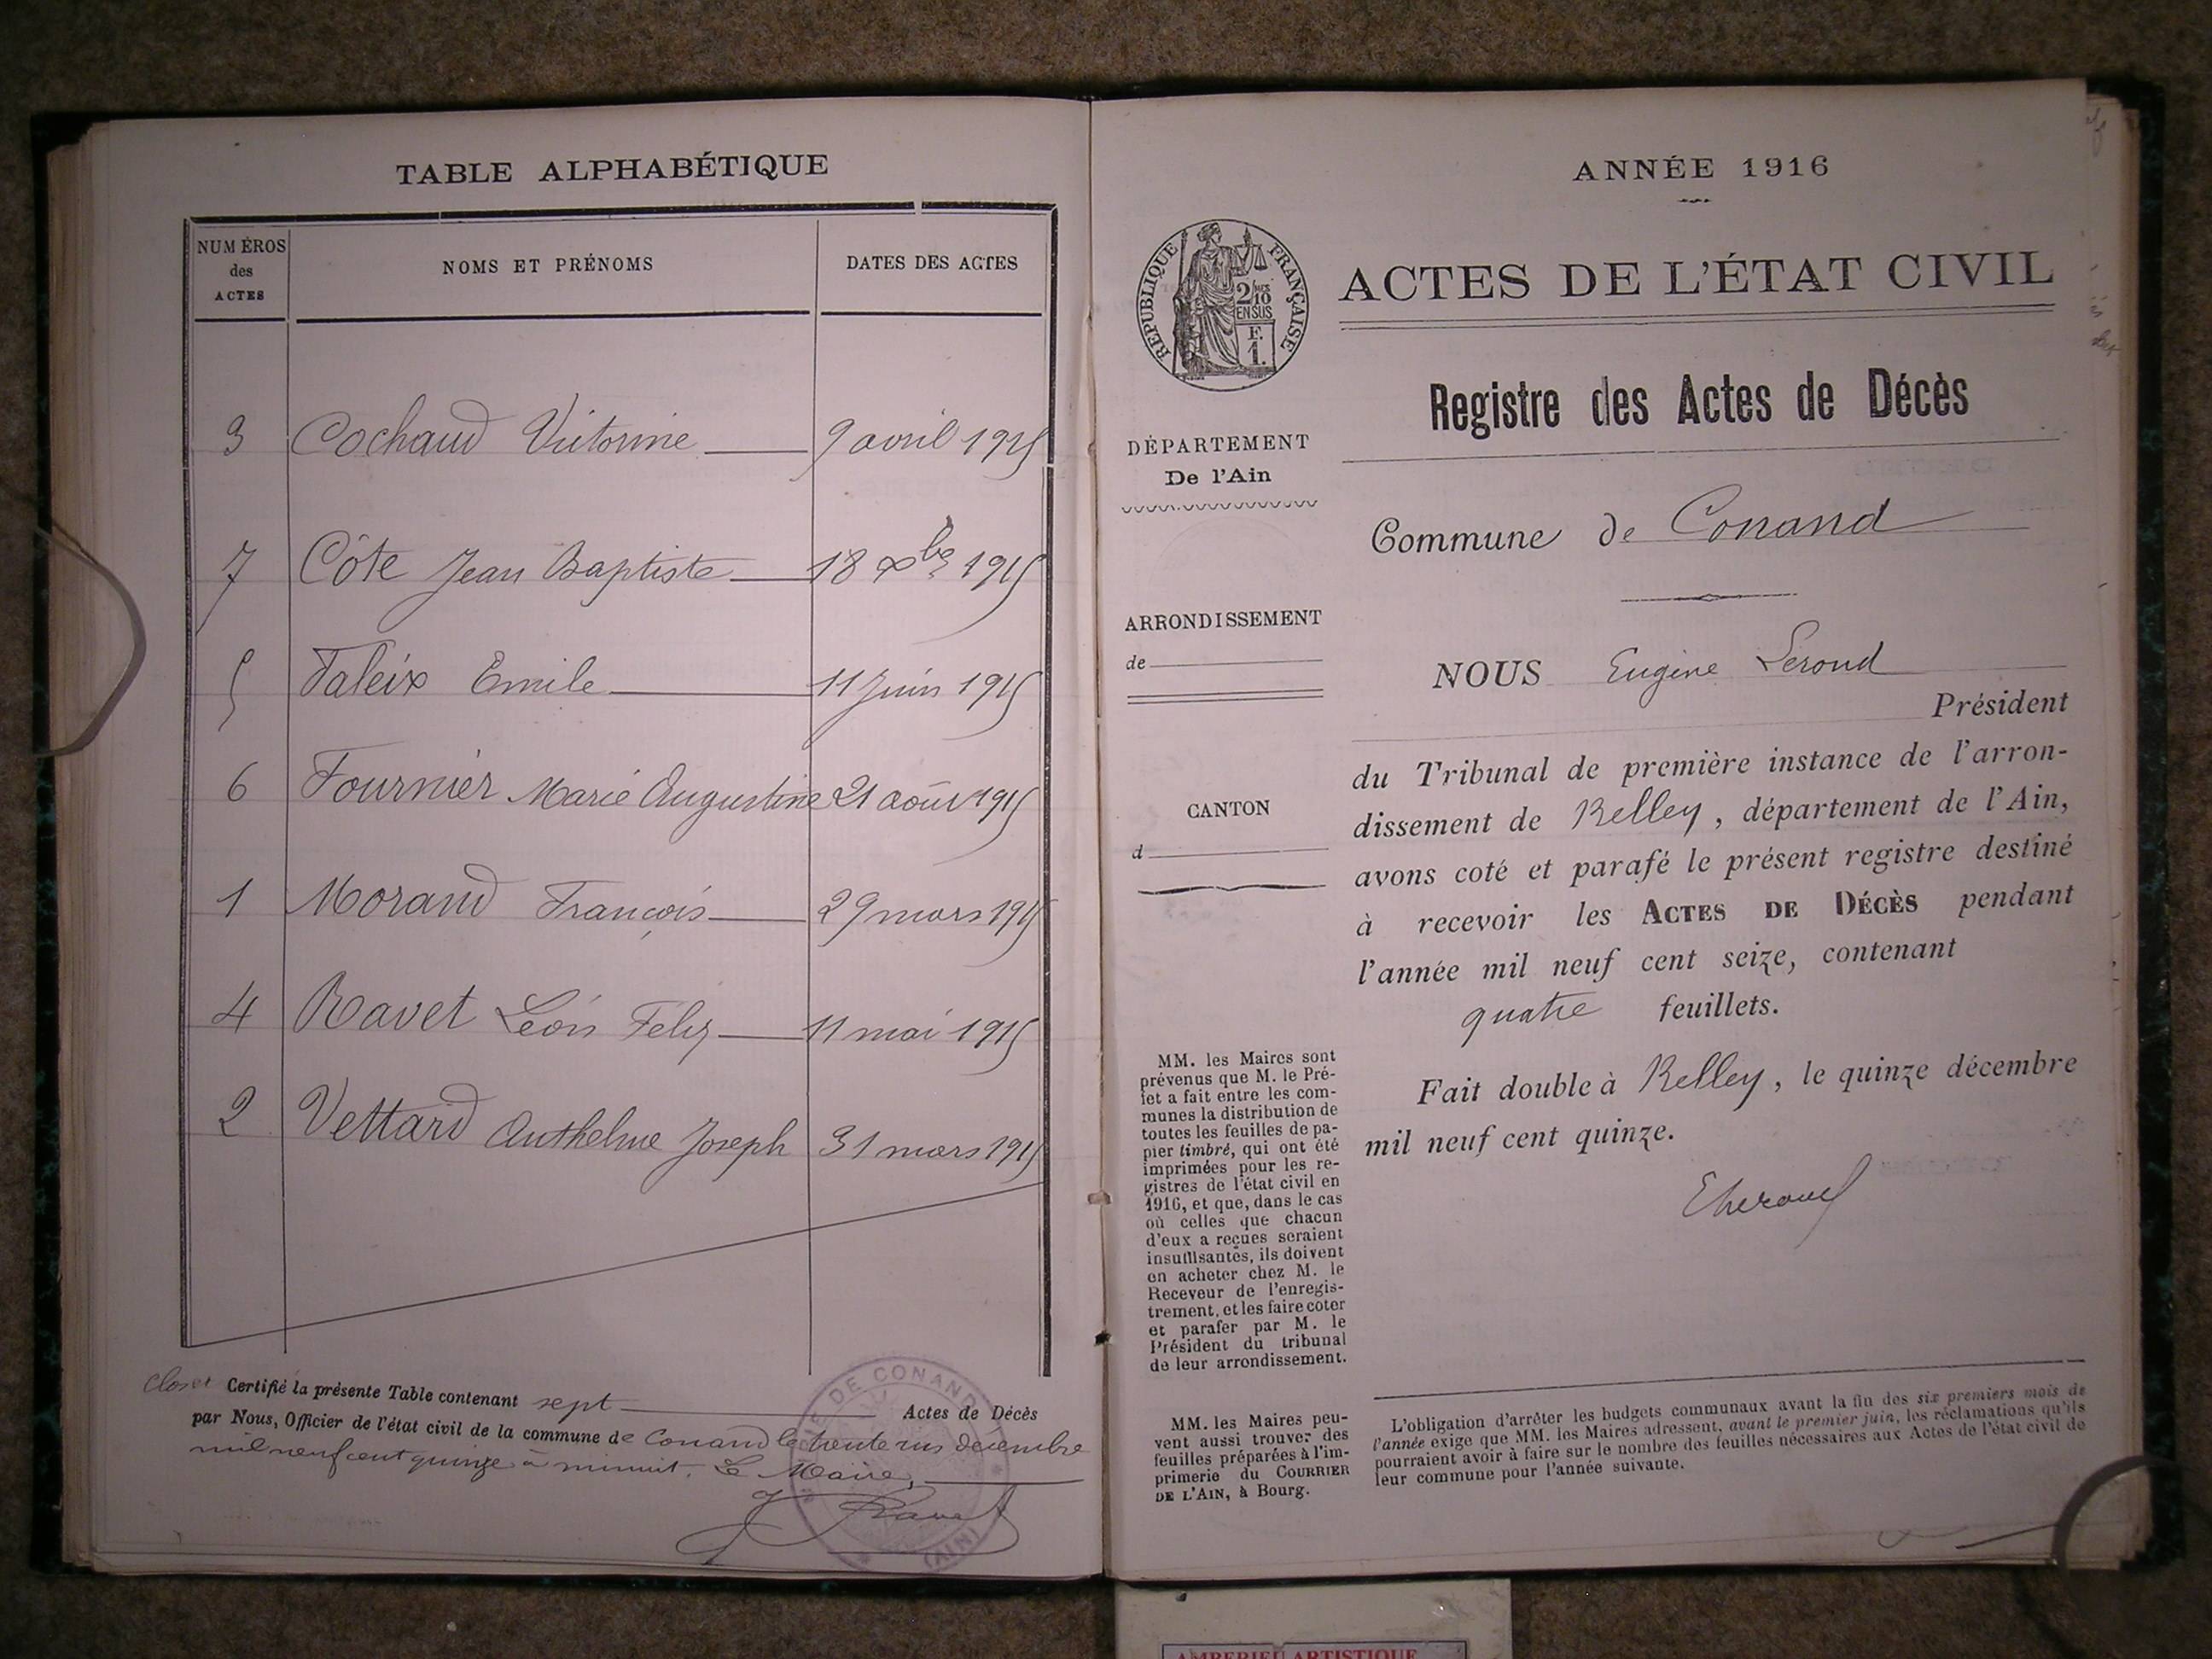 TABLE ALPHABÉTIQUE
NUMÉROS des ACTES
NOMS ET PRÉNOMS
DATES DES ACTES
3 Cochaud Victorine 9 avril 1915
7 Côte Jean Baptiste 18 Xbre 1915
5 Faleix Emile 11 Juin 1915
6 Fournier Marie Augustine 21 août 1915
1 Morand François 29 mars 1915
4 Ravet Léon Félix 11 mai 1915
2 Vettard Anthelme Joseph 31 mars 1915
Clos et Certifié la présente Table contenant sept Actes de Décès
par Nous, Officier de l'état civil de la commune de Conand le trente un décembre
mil neuf cent quinze à minuit. Le Maire,
J Ravet
DE CONAND
(AIN)
ANNÉE 1916
RÉPUBLIQUE FRANÇAISE
2/10
EN SUS
F.
1.
ACTES DE L'ÉTAT CIVIL
Registre des Actes de Décès
DÉPARTEMENT
De l'Ain
Commune de Conand
ARRONDISSEMENT
de
CANTON
d
NOUS Eugène Lerond
Président
du Tribunal de première instance de l'arron-
dissement de Belley, département de l'Ain,
avons coté et parafé le présent registre destiné
à recevoir les ACTES DE DÉCÈS pendant
l'année mil neuf cent seize, contenant
quatre feuillets.
Fait double à Belley, le quinze décembre
mil neuf cent quinze.
MM. les Maires sont
prévenus que M. le Pré-
fet a fait entre les com-
munes la distribution de
toutes les feuilles de pa-
pier timbré, qui ont été
imprimées pour les re-
gistres de l'état civil en
1916, et que, dans le cas
où celles que chacun
d'eux a reçues seraient
insuffisantes, ils doivent
en acheter chez M. le
Receveur de l'enregis-
trement, et les faire coter
et parafer par M. le
Président du tribunal
de leur arrondissement.
MM. les Maires peu-
vent aussi trouver des
feuilles préparées à l'im-
primerie du COURRIER
DE L'AIN, à Bourg.
L'obligation d'arrêter les budgets communaux avant la fin des six premiers mois de
l'année exige que MM. les Maires adressent, avant le premier juin, les réclamations qu'ils
pourraient avoir à faire sur le nombre des feuilles nécessaires aux Actes de l'état civil de
leur commune pour l'année suivante.
AMBERIEU ARTISTIQUE